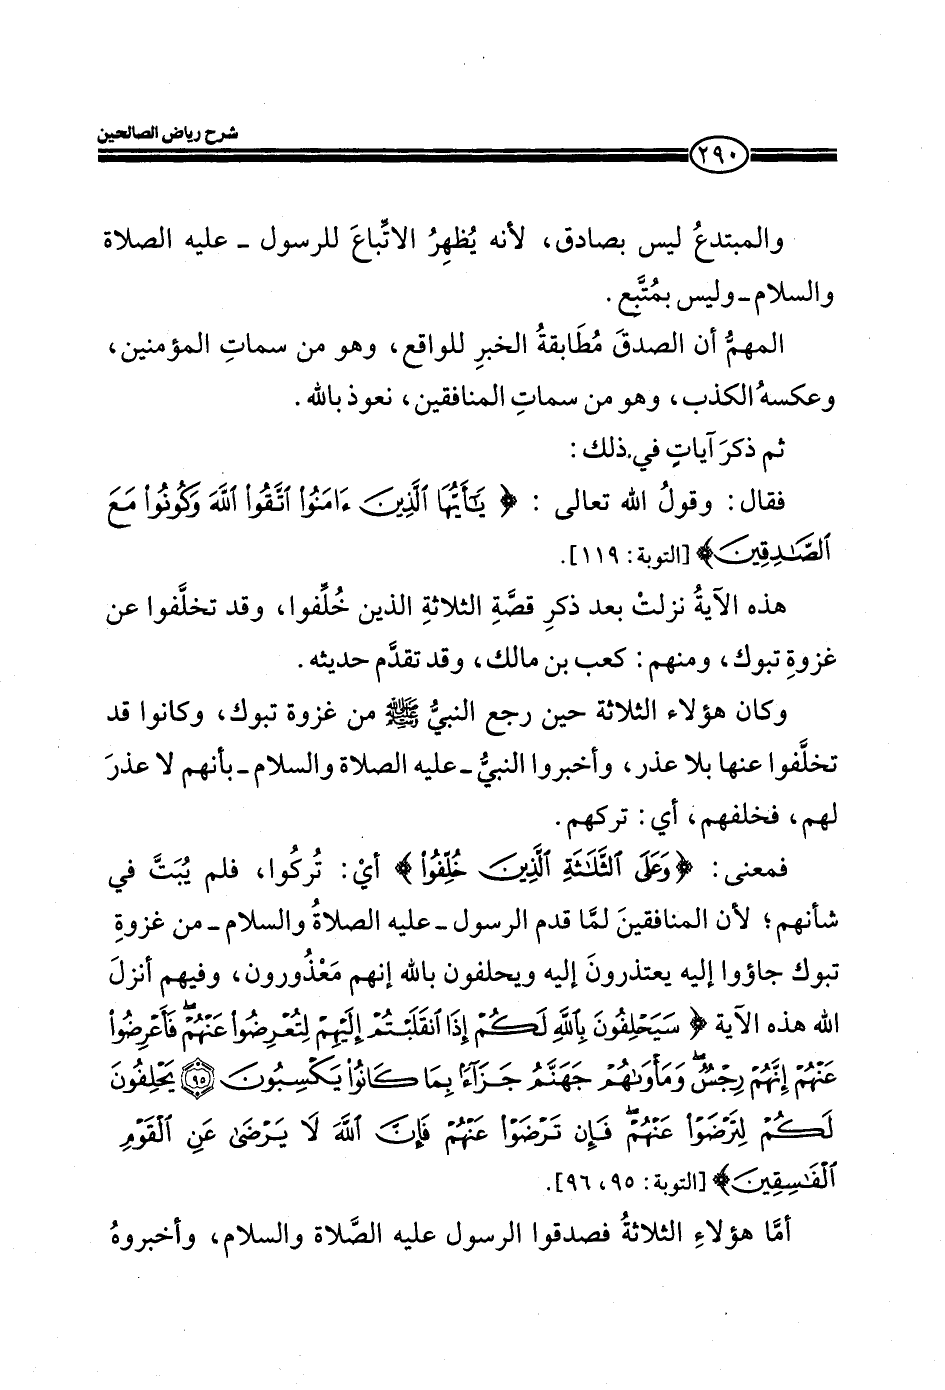 شرح رياض الصالحين
٢٩٠
والمبتدعُ ليس بصادق، لأنه يُظهِرُ الاتِّباعَ للرسول ـ عليه الصلاة
والسلام ـ وليس بمُتَّبِع.
المهمُّ أن الصدقَ مُطَابقةُ الخبرِ للواقع، وهو من سماتِ المؤمنين،
وعكسهُ الكذب، وهو من سماتِ المنافقين، نعوذ بالله.
ثم ذكرَ آياتٍ في ذلك:
فقال: وقولُ الله تعالى: ﴿ يَٰٓأَيُّهَا ٱلَّذِينَ ءَامَنُوا۟ ٱتَّقُوا۟ ٱللَّهَ وَكُونُوا۟ مَعَ
ٱلصَّٰدِقِينَ﴾ [التوبة: ١١٩].
هذه الآيةُ نزلتْ بعد ذكرِ قصَّةِ الثلاثةِ الذين خُلِّفوا، وقد تخلَّفوا عن
غزوةِ تبوك، ومنهم: كعب بن مالك، وقد تقدَّم حديثه.
وكان هؤلاء الثلاثة حين رجع النبيُّ ﷺ من غزوة تبوك، وكانوا قد
تخلَّفوا عنها بلا عذر، وأخبروا النبيُّ ـ عليه الصلاة والسلام ـ بأنهم لا عذرَ
لهم، فخلفهم، أي: تركهم.
فمعنى: ﴿وَعَلَى ٱلثَّلَٰثَةِ ٱلَّذِينَ خُلِّفُوا۟﴾ أيْ: تُركوا، فلم يُبَتَّ في
شأنهم؛ لأن المنافقينَ لمَّا قدم الرسول ـ عليه الصلاةُ والسلام ـ من غزوةِ
تبوك جاؤوا إليه يعتذرونَ إليه ويحلفون بالله إنهم مَعْذُورون، وفيهم أنزلَ
الله هذه الآية ﴿ سَيَحْلِفُونَ بِٱللَّهِ لَكُمْ إِذَا ٱنقَلَبْتُمْ إِلَيْهِمْ لِتُعْرِضُوا۟ عَنْهُمْ ۖ فَأَعْرِضُوا۟
عَنْهُمْ إِنَّهُمْ رِجْسٌ ۖ وَمَأْوَىٰهُمْ جَهَنَّمُ جَزَآءًۢ بِمَا كَانُوا۟ يَكْسِبُونَ ۝٩٥ يَحْلِفُونَ
لَكُمْ لِتَرْضَوْا۟ عَنْهُمْ ۖ فَإِن تَرْضَوْا۟ عَنْهُمْ فَإِنَّ ٱللَّهَ لَا يَرْضَىٰ عَنِ ٱلْقَوْمِ
ٱلْفَٰسِقِينَ﴾ [التوبة: ٩٥، ٩٦].
أمَّا هؤلاءِ الثلاثةُ فصدقوا الرسول عليه الصَّلاة والسلام، وأخبروهُ